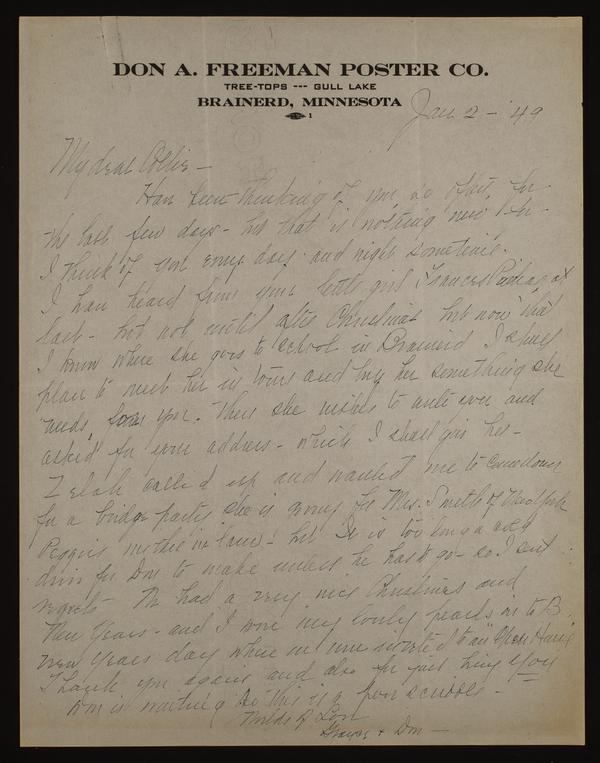 DON A. FREEMAN POSTER CO.
TREE-TOPS --- GULL LAKE
BRAINERD, MINNESOTA
1
Jan 2 - '49
My dear Collie -
Have been thinking of you so often for
the last few days - but that is nothing new for
I think of you every day and night sometime.
I have heard from your little girl Frances at
last - but not until after Christmas but now that
I know where she goes to school in Brainerd I shall
plan to meet her in town and buy her something she
needs, from you. Then she wishes to write you and
asked for your address - which I shall give her -
called up and wanted me to come down
for a bridge party she is giving for Mrs. Smith of New York
Peggie's mother in law - but it is too long a cold
drive for Don to make unless he has to go - so I sent
regrets - We had a very nice Christmas and
New Years - and I wore my lovely pearls in to B.
New Years day when we were invited to an "Open House"
Thank you again and also for just being you
Don is waiting so this is a poor scribble -
Loads of Love
Grayce + Don -